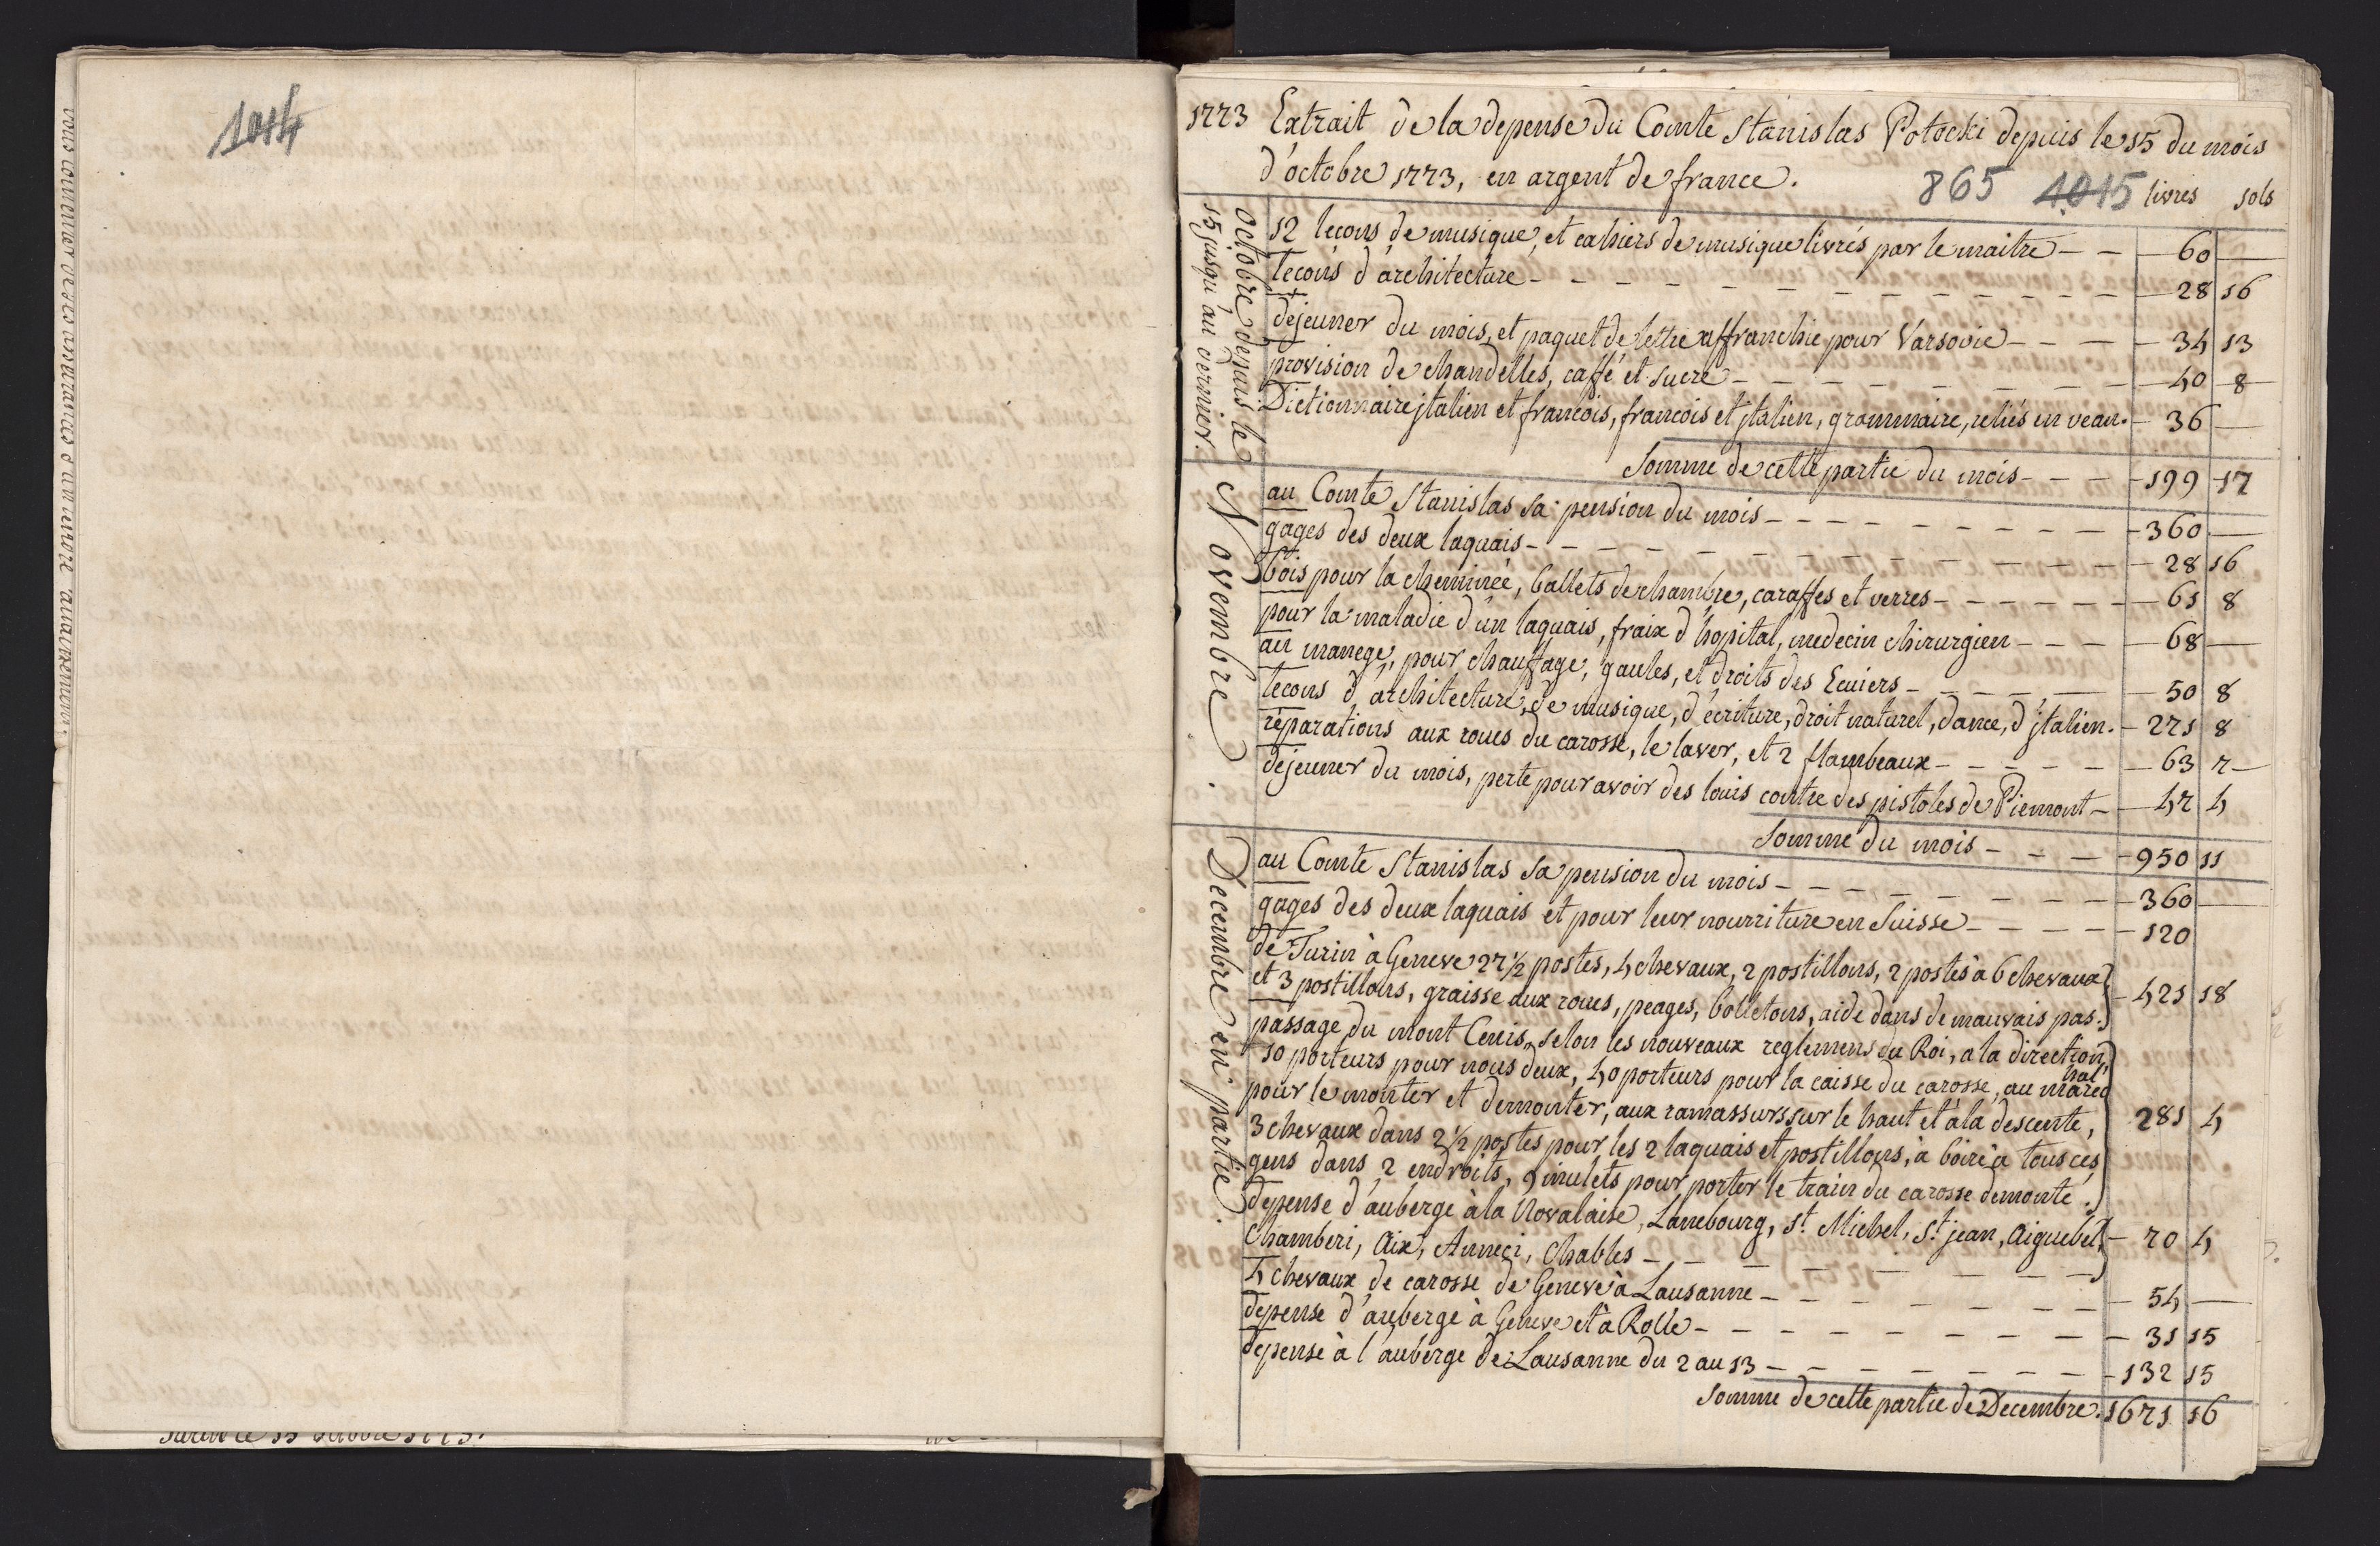 1014
1773 Extrait de la depense du Comte Stanislas Potocki depuis le 15 du mois
d'octobre 1773, en argent de france.
865 1015 livres sols
octobre depuis le
15 jusqu'au dernier.
12 lecons de musique, et cahiers de musique livrés par le maitre - - 60 —
lecons d'architecture - - - 28 16
dejeuner du mois, et paquet de lettre affranchie pour Varsovie - - - 34 13
provision de chandelles, caffé et sucre - - - 40 8
Dictionnaire jtalien et francois, francois et jtalien, grammaire, reliés en veau. - 36 —
Somme de cette partie du mois - - - 199 17
Novembre.
au Comte Stanislas sa pension du mois - - - 360 —
gages des deux laquais - - - 28 16
bois pour la cheminée, ballets de chambre, caraffes et verres - - - 61 8
pour la maladie d'un laquais, fraix d'hopital, medecin chirurgien - - - 68 —
au manege, pour chauffage, gaules, et droits des Ecuiers - - - 50 8
lecons d'architecture, de musique, d'écriture, droit naturel, dance, d'jtalien. - 271 8
réparations aux roues du carosse, le laver, et 2 flambeaux - - - 63 7
dejeuner du mois, perte pour avoir des louis contre des pistoles de Piemont - 47 4
Somme du mois - - - 950 11
Decembre en partie.
au Comte Stanislas sa pension du mois - - - 360 —
gages des deux laquais et pour leur nourriture en Suisse - - - 120
de Turin à Geneve 27 1/2 postes, 4 chevaux, 2 postillons, 2 postes à 6 chevaux
et 3 postillons, graisse aux roues, peages, bolletons, aide dans de mauvais pas. - 421 18
passage du mont Cenis, selon les nouveaux reglemens du Roi, a la direction,
10 porteurs pour nous deux, 40 porteurs pour la caisse du carosse, au marechal
pour le monter et demonter, aux ramassurs sur le haut et à la descente, 281 4
3 chevaux dans 2 1/2 postes pour les 2 laquais et postillons, à boire à tous ces
gens dans 2 endroits, 9 mulets pour porter le train du carosse demonté.
depense d'auberge à la Novalaise, Lanebourg, St. Michel, St. jean, Aiguebel,
Chamberi, Aix, Anneci, Chables - - - 70 4
4 chevaux de carosse de Geneve à Lausanne - - - 54 —
depense d'auberge à Geneve et à Rolle - - - 31 15
depense à l'auberge de Lausanne du 2 au 13 - - - 132 15
somme de cette partie de Decembre. 1671 16